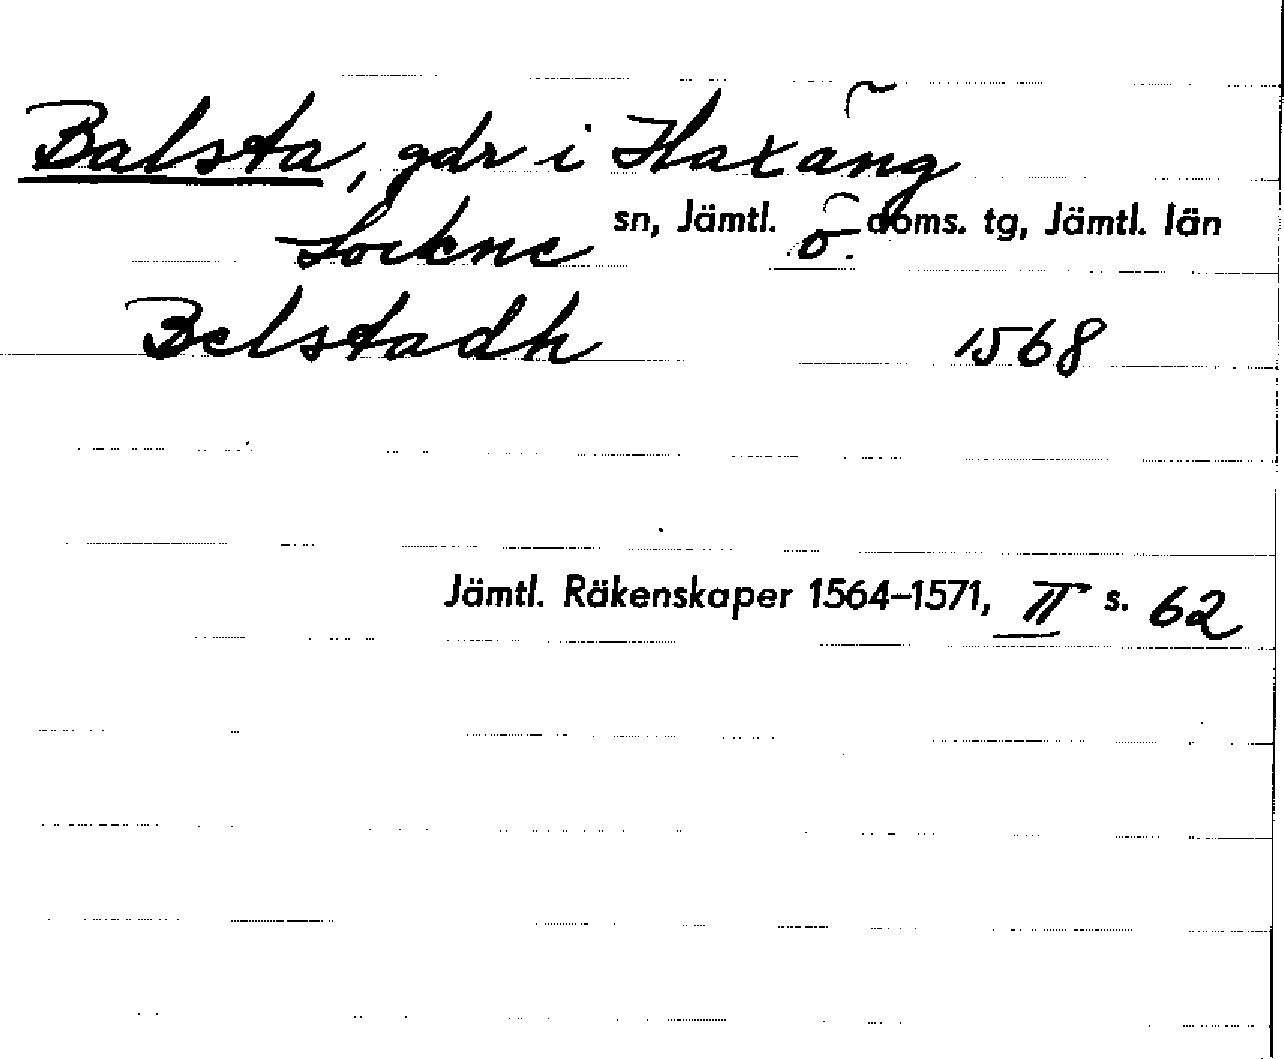 Balsta, gdr i Haxäng
Lockne sn, Jämtl. ö. doms. tg, Jämtl. län
Belstadh 1568
Jämtl. Räkenskaper 1564–1571, II s. 62